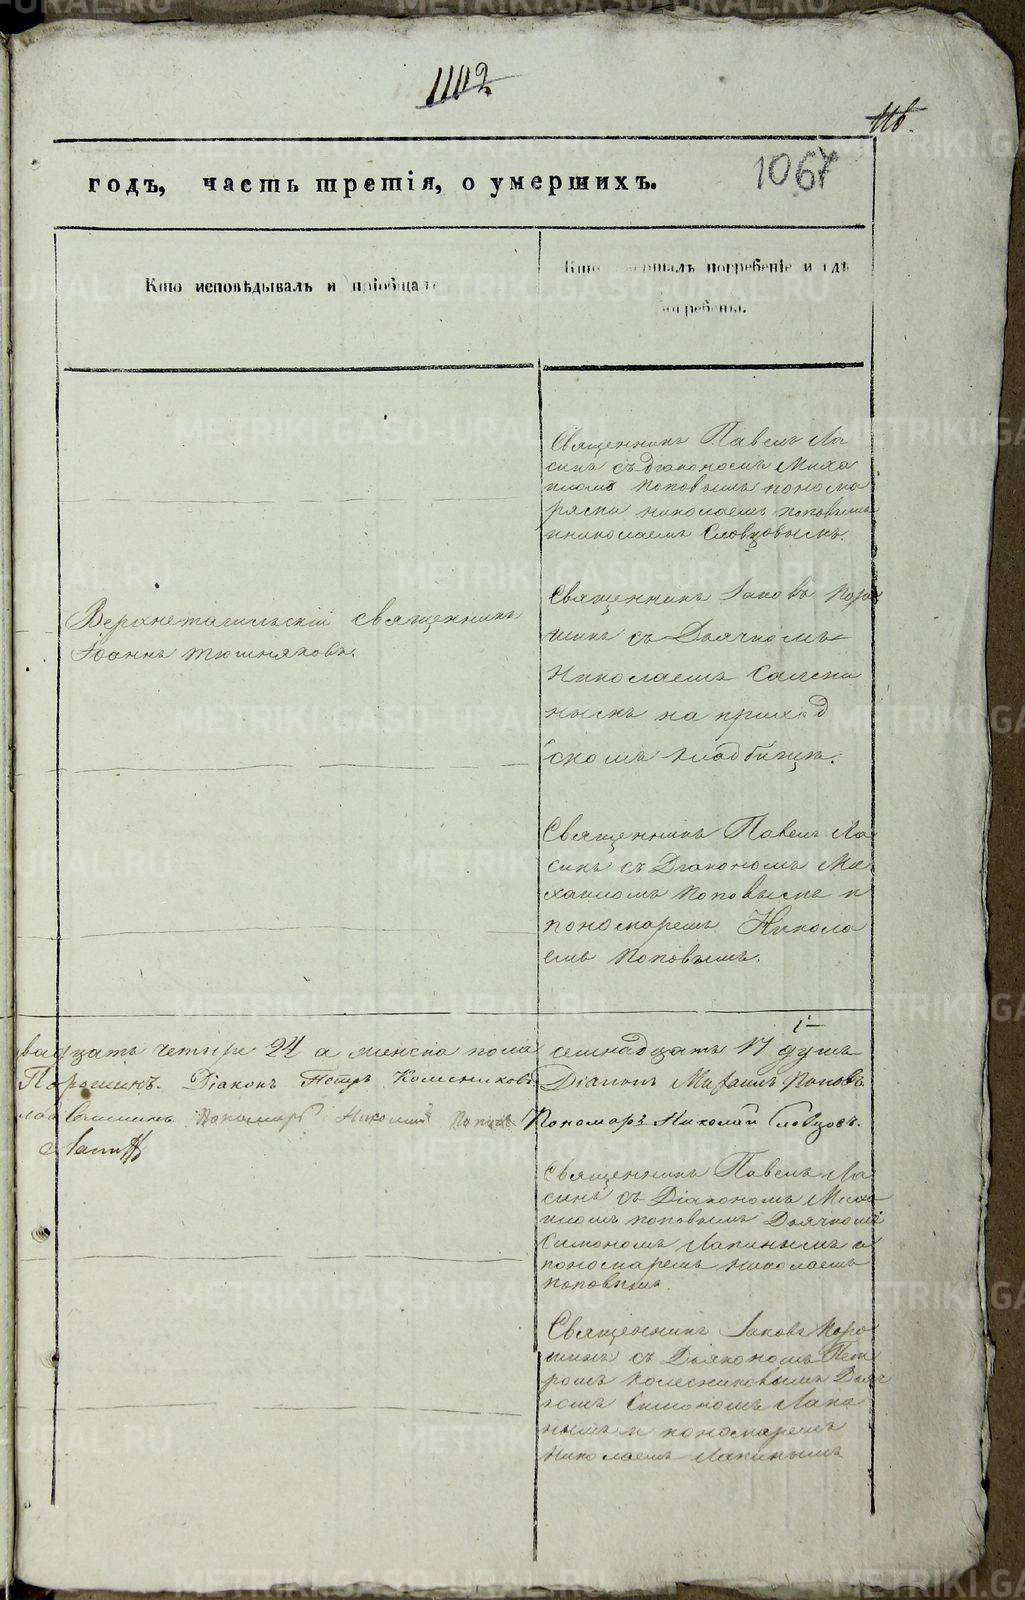 1102
116.
1067
годъ, часть третія, о умершихъ.
Кто исповѣдывалъ и пріобщалъ
Кто совершалъ погребеніе и гдѣ
погребены.
Священникъ Павелъ Ла
синъ съ діакономъ Миха
иломъ Поповымъ понома
рями Николаемъ Поповымъ
и Николаемъ Словцовымъ.
Верхнетагильскій священникъ
Іоаннъ Тюшняковъ.
Священникъ Іаковъ Поро
шинъ съ Дьячкомъ
Николаемъ
нымъ на приход
скомъ кладбищѣ.
Священникъ Павелъ Ла
синъ съ Діакономъ Ми
хаиломъ Поповымъ и
пономаремъ Никола
емъ Поповымъ.
вадцать четыре 24 а женска пола семнадцать 17 душъ
Порошинъ. Діаконъ Петръ Колесниковъ Діаконъ Михаилъ Поповъ
Пономарь Николай Поповъ Пономарь Николай Словцовъ.
Лапинъ
Священникъ Павелъ Ла
синъ съ Діакономъ Миха
иломъ Поповымъ Дьячкомъ
Симономъ Лапинымъ и
пономаремъ Николаемъ
Поповымъ.
Священникъ Іаковъ Поро
шинъ съ Дьякономъ Пет
ромъ Колесниковымъ Дьяч
комъ Симономъ Лапи
нымъ и пономаремъ
Николаемъ Лапинымъ
METRIKI.GASO-URAL.RU